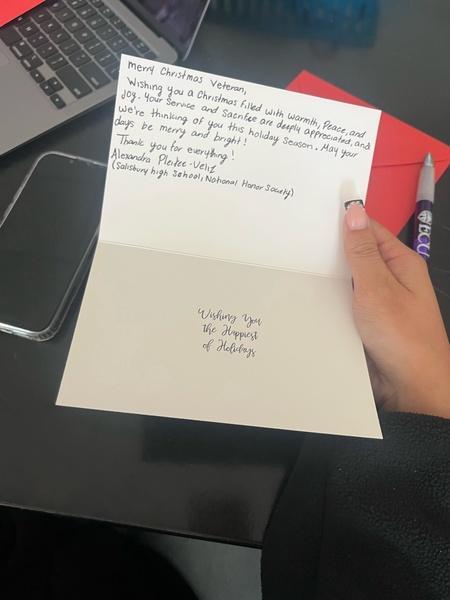 Merry Christmas Veteran,
Wishing you a Christmas filled with warmth, Peace, and
Joy. Your Service and Sacrifice are deeply appreciated, and
we're thinking of you this holiday season. May your
days be merry and bright!
Thank you for everything!
Alexandra Pleitez-Veliz
(Salisbury high School, National Honor Society)
Wishing You
the Happiest
of Holidays
ECU